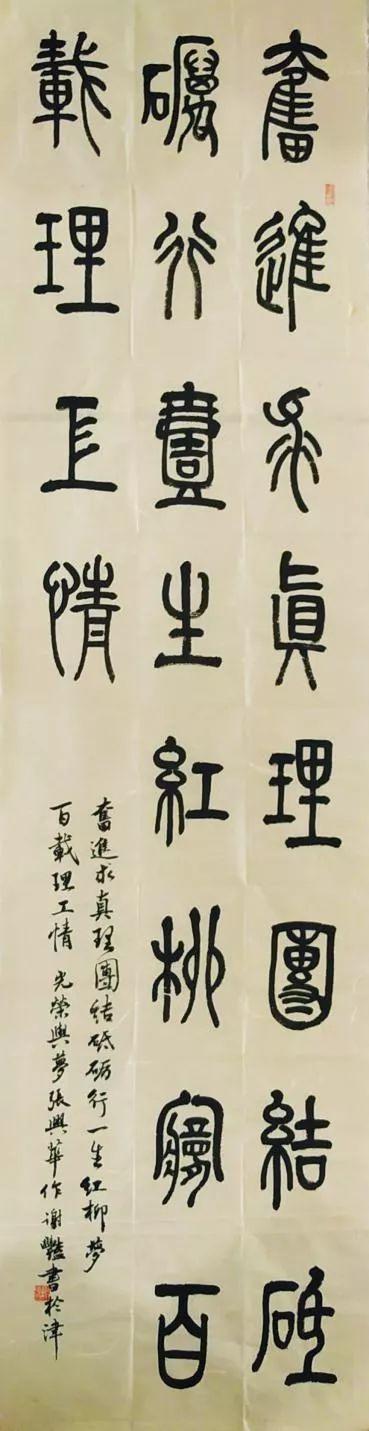 奮進求真理團結砥
礪行壹生紅柳夢百
載理工情
奮進求真理團結砥砺行一生红柳夢
百載理工情 光榮與夢張興華作謝豔書於津